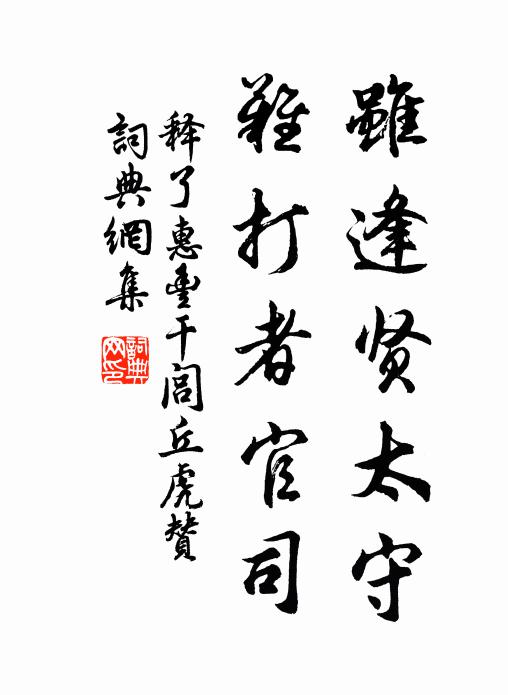 雖逢賢太守
難打者官司
释了惠豊干閭丘虎贊
詞典網集
詞典網印